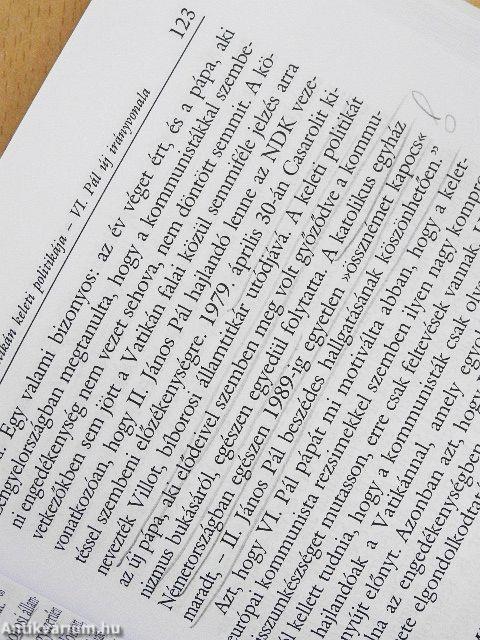 123
tikán keleti politikája – VI. Pál új irányvonala
Egy valami bizonyos: az év véget ért, és a pápa, aki
Lengyelországban megtanulta, hogy a kommunistákkal szembe-
ni engedékenység nem vezet sehova, nem döntött semmit. A kö-
vetkezőkben sem jört a Vatikán falai közül semmiféle jelzés arra
vonatkozoan, hogy II. János Pál hajlandó lenne az NDK veze-
téssel szembeni előzékenységre. 1979. április 30-án Casarolit ki-
nevezték Villot, bíborosi államtitkár utódjává. A keleti politikát
az új pápa, aki elődeivel szemben meg volt győződve a kommu-
nizmus bukásáról, egészen egyedül folytatta. A katolikus egyház
Németországban egészen 1989-ig egyetlen »össznémet kapocs«
maradt, – II. János Pál beszédes hallgatásának köszönhetően.»
Azt, hogy VI. Pál pápát mi motiválta abban, hogy a kelet-
európai kommunista rezsimekkel szemben ilyen nagy kompro
sszumkészséget mutasson, erre csak feltevések vannak.
kellett tudnia, hogy a kommunisták csak
hajlandóak a Vatikánnal, amely egy
nyújt előnyt. Azonban azt, hogy
ia az engedékenységben
te elgondolkodtató
Antikvarium.hu